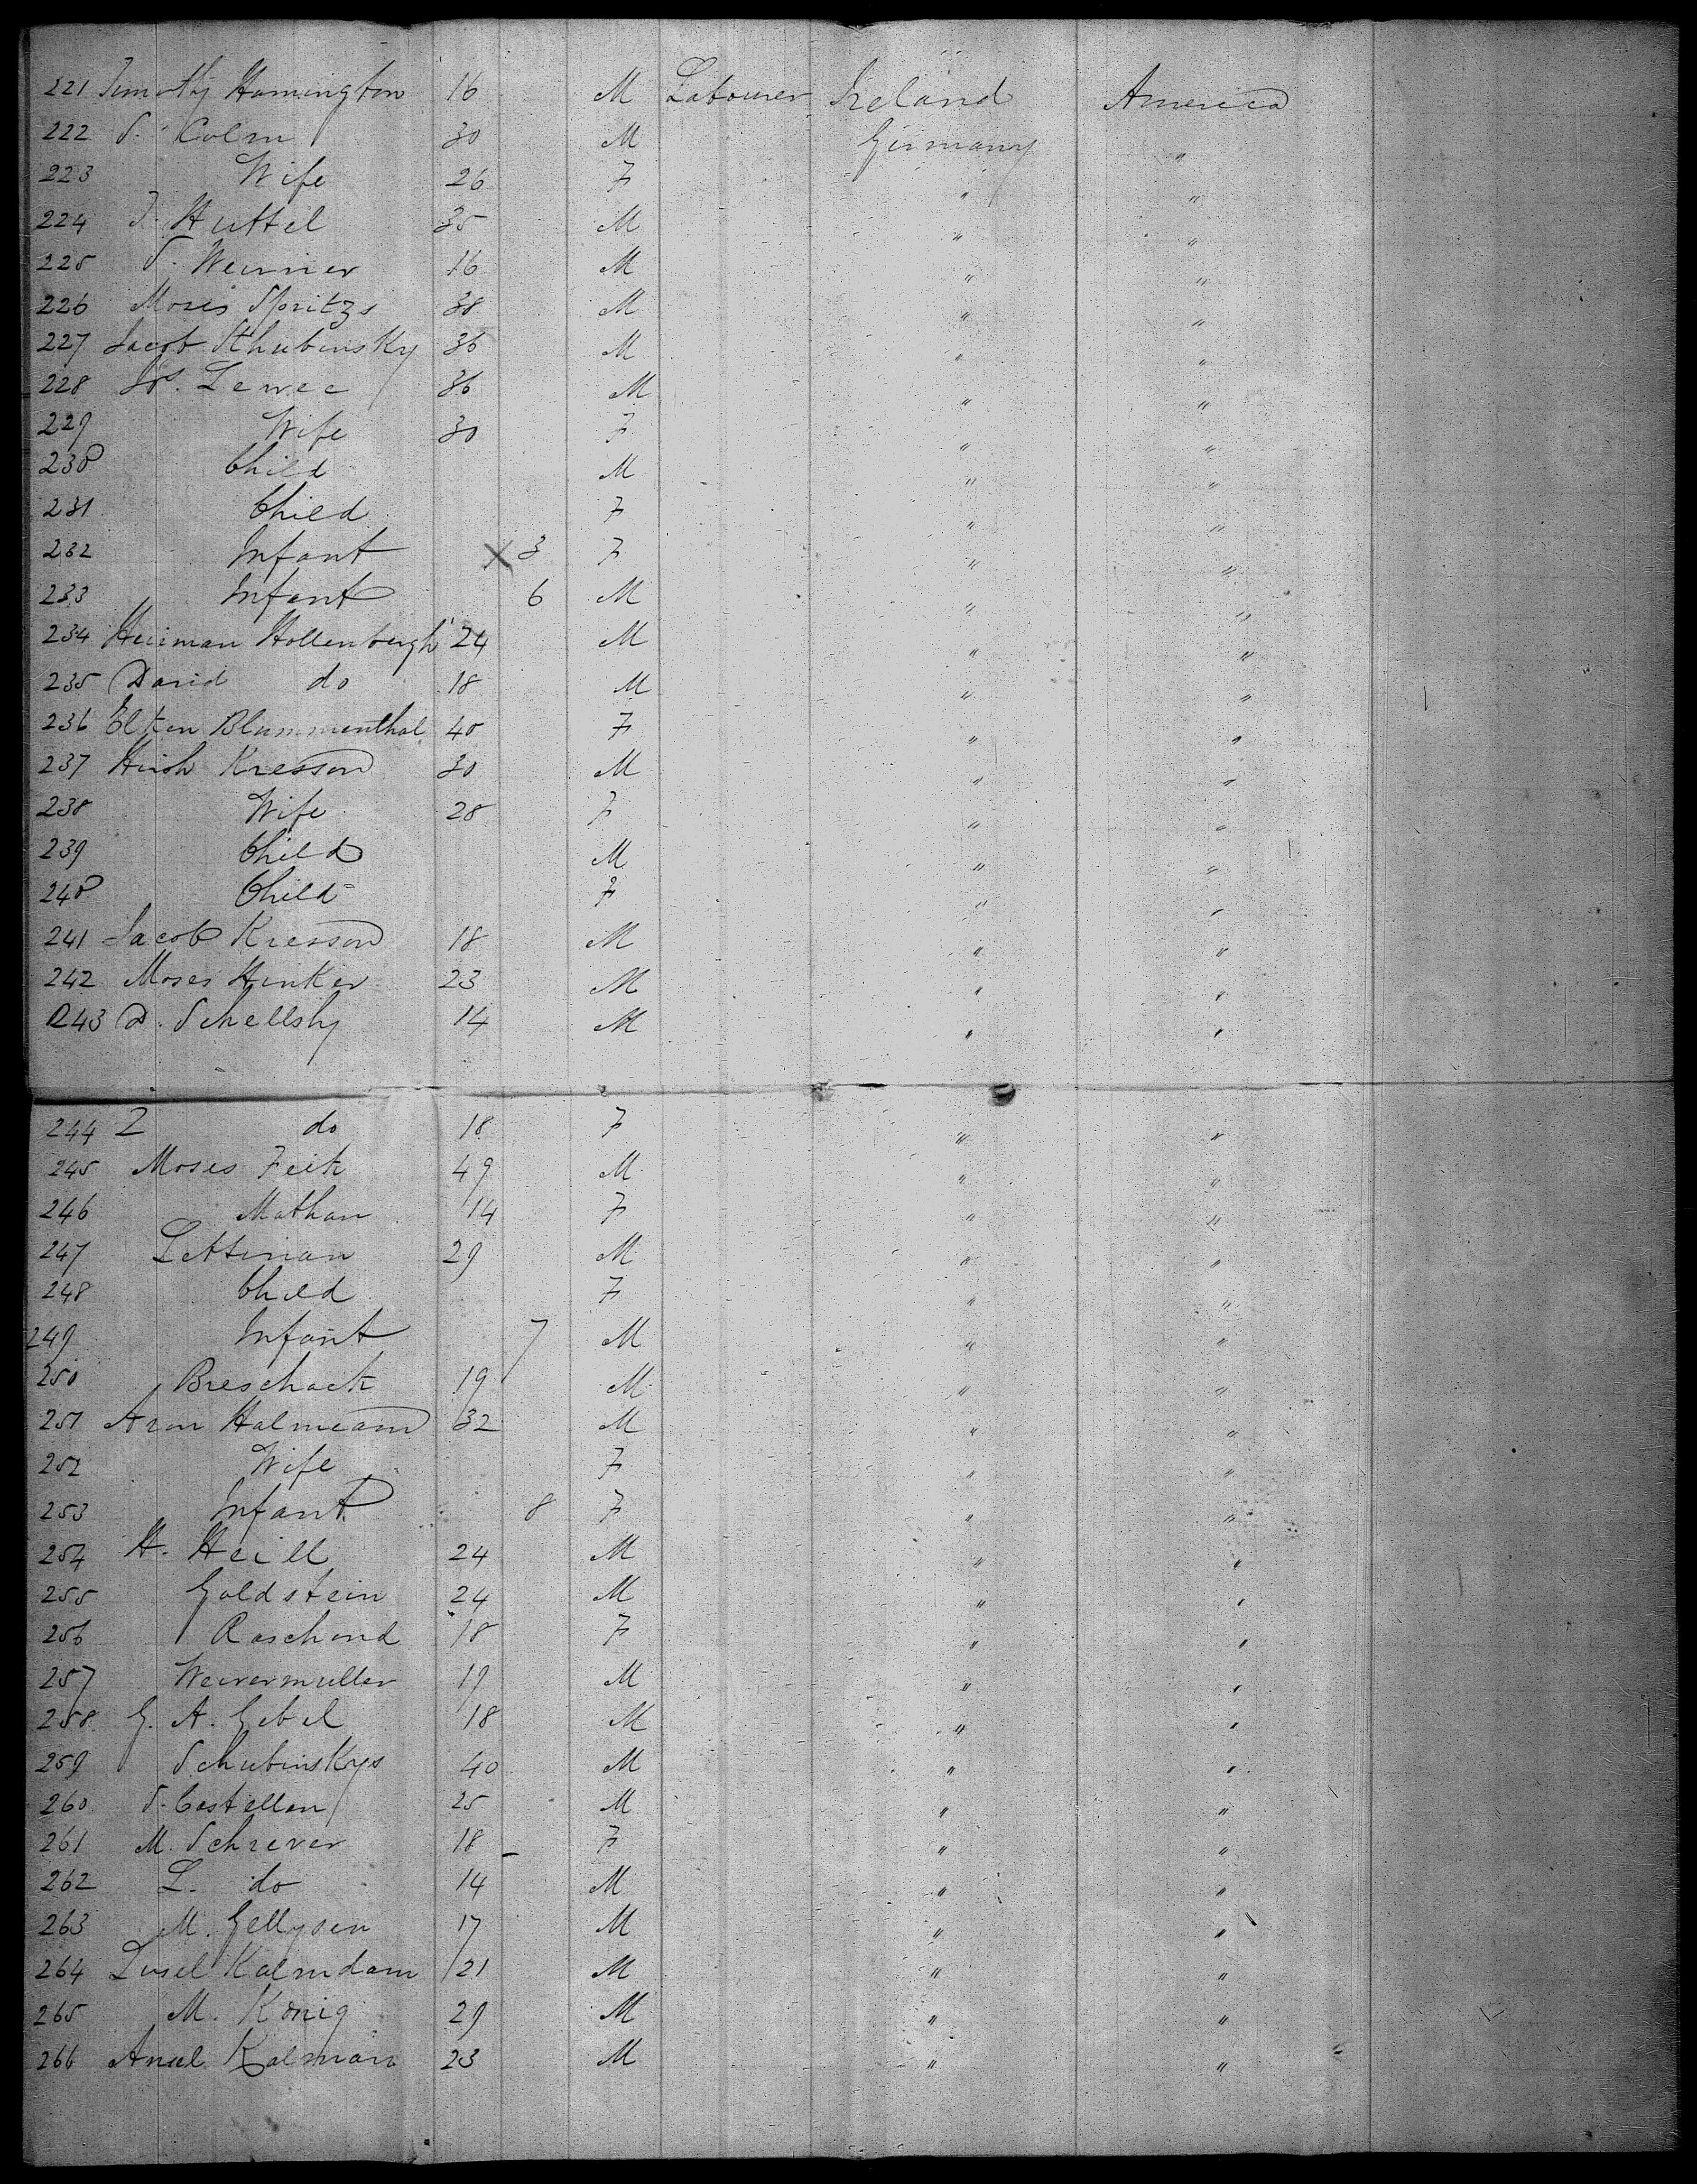 221 Timothy Hamington 16 M Labourer Ireland America
222 S. Colm 30 M Germany "
223 Wife 26 F " "
224 J. Huttel 35 M " "
225 S. Weinner 16 M " "
226 Moses Spritzs 38 M " "
227 Jacob Schubinsky 36 M " "
228 Lewec 36 M " "
229 Wife 30 F " "
230 Child M " "
231 Child F " "
232 Infant X 3 F " "
233 Infant 6 M " "
234 Herman Hollenbergh 24 M " "
235 David do 18 M " "
236 Elken Blummenthal 40 F " "
237 Hirsh Kresson 30 M " "
238 Wife 28 F " "
239 Child M " "
240 Child F " "
241 Jacob Kresson 18 M " "
242 Moses Hinker 23 M " "
243 D. Schellsky 14 M " "
244 Z do 18 F " "
245 Moses Feik 49 M " "
246 Mathan 14 F " "
247 Letterian 29 M " "
248 Child F " "
249 Infant 7 M " "
250 Breschack 19 M " "
251 Aron Halmeann 32 M " "
252 Wife F " "
253 Infant 8 F " "
254 H. Heill 24 M " "
255 Goldstein 24 M " "
256 Raschend 18 F " "
257 Weivermuller 19 M " "
258 G. A. Gebel 18 M " "
259 Schubinskys 40 M " "
260 S. Castellan 25 M " "
261 M. Schrever 18 F " "
262 L. do 14 M " "
263 M. Gellysen 17 M " "
264 Lusel Kalmdam 21 M " "
265 M. König 29 M " "
266 Ansel Kalman 23 M " "